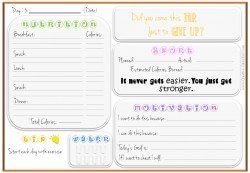 Day : 
Date:
NUTRITION
Breakfast: Calories:
Snack
Lunch
Snack
Dinner:
Total Calories:
TIP
Start each day with exercise
WATER
Did you come this FAR
just to GIVE UP?
SPORT
Planned: Actual:
Estimated Calories Burned:
It never gets easier. You just get
stronger.
MOTIVATION
I want to do this because:
I can do this because:
Today's Goal is: